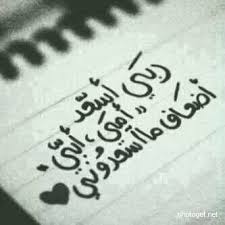 ربي أسعد
" أمي، أبي "
أضعاف ما أسعدوني
photogot.net